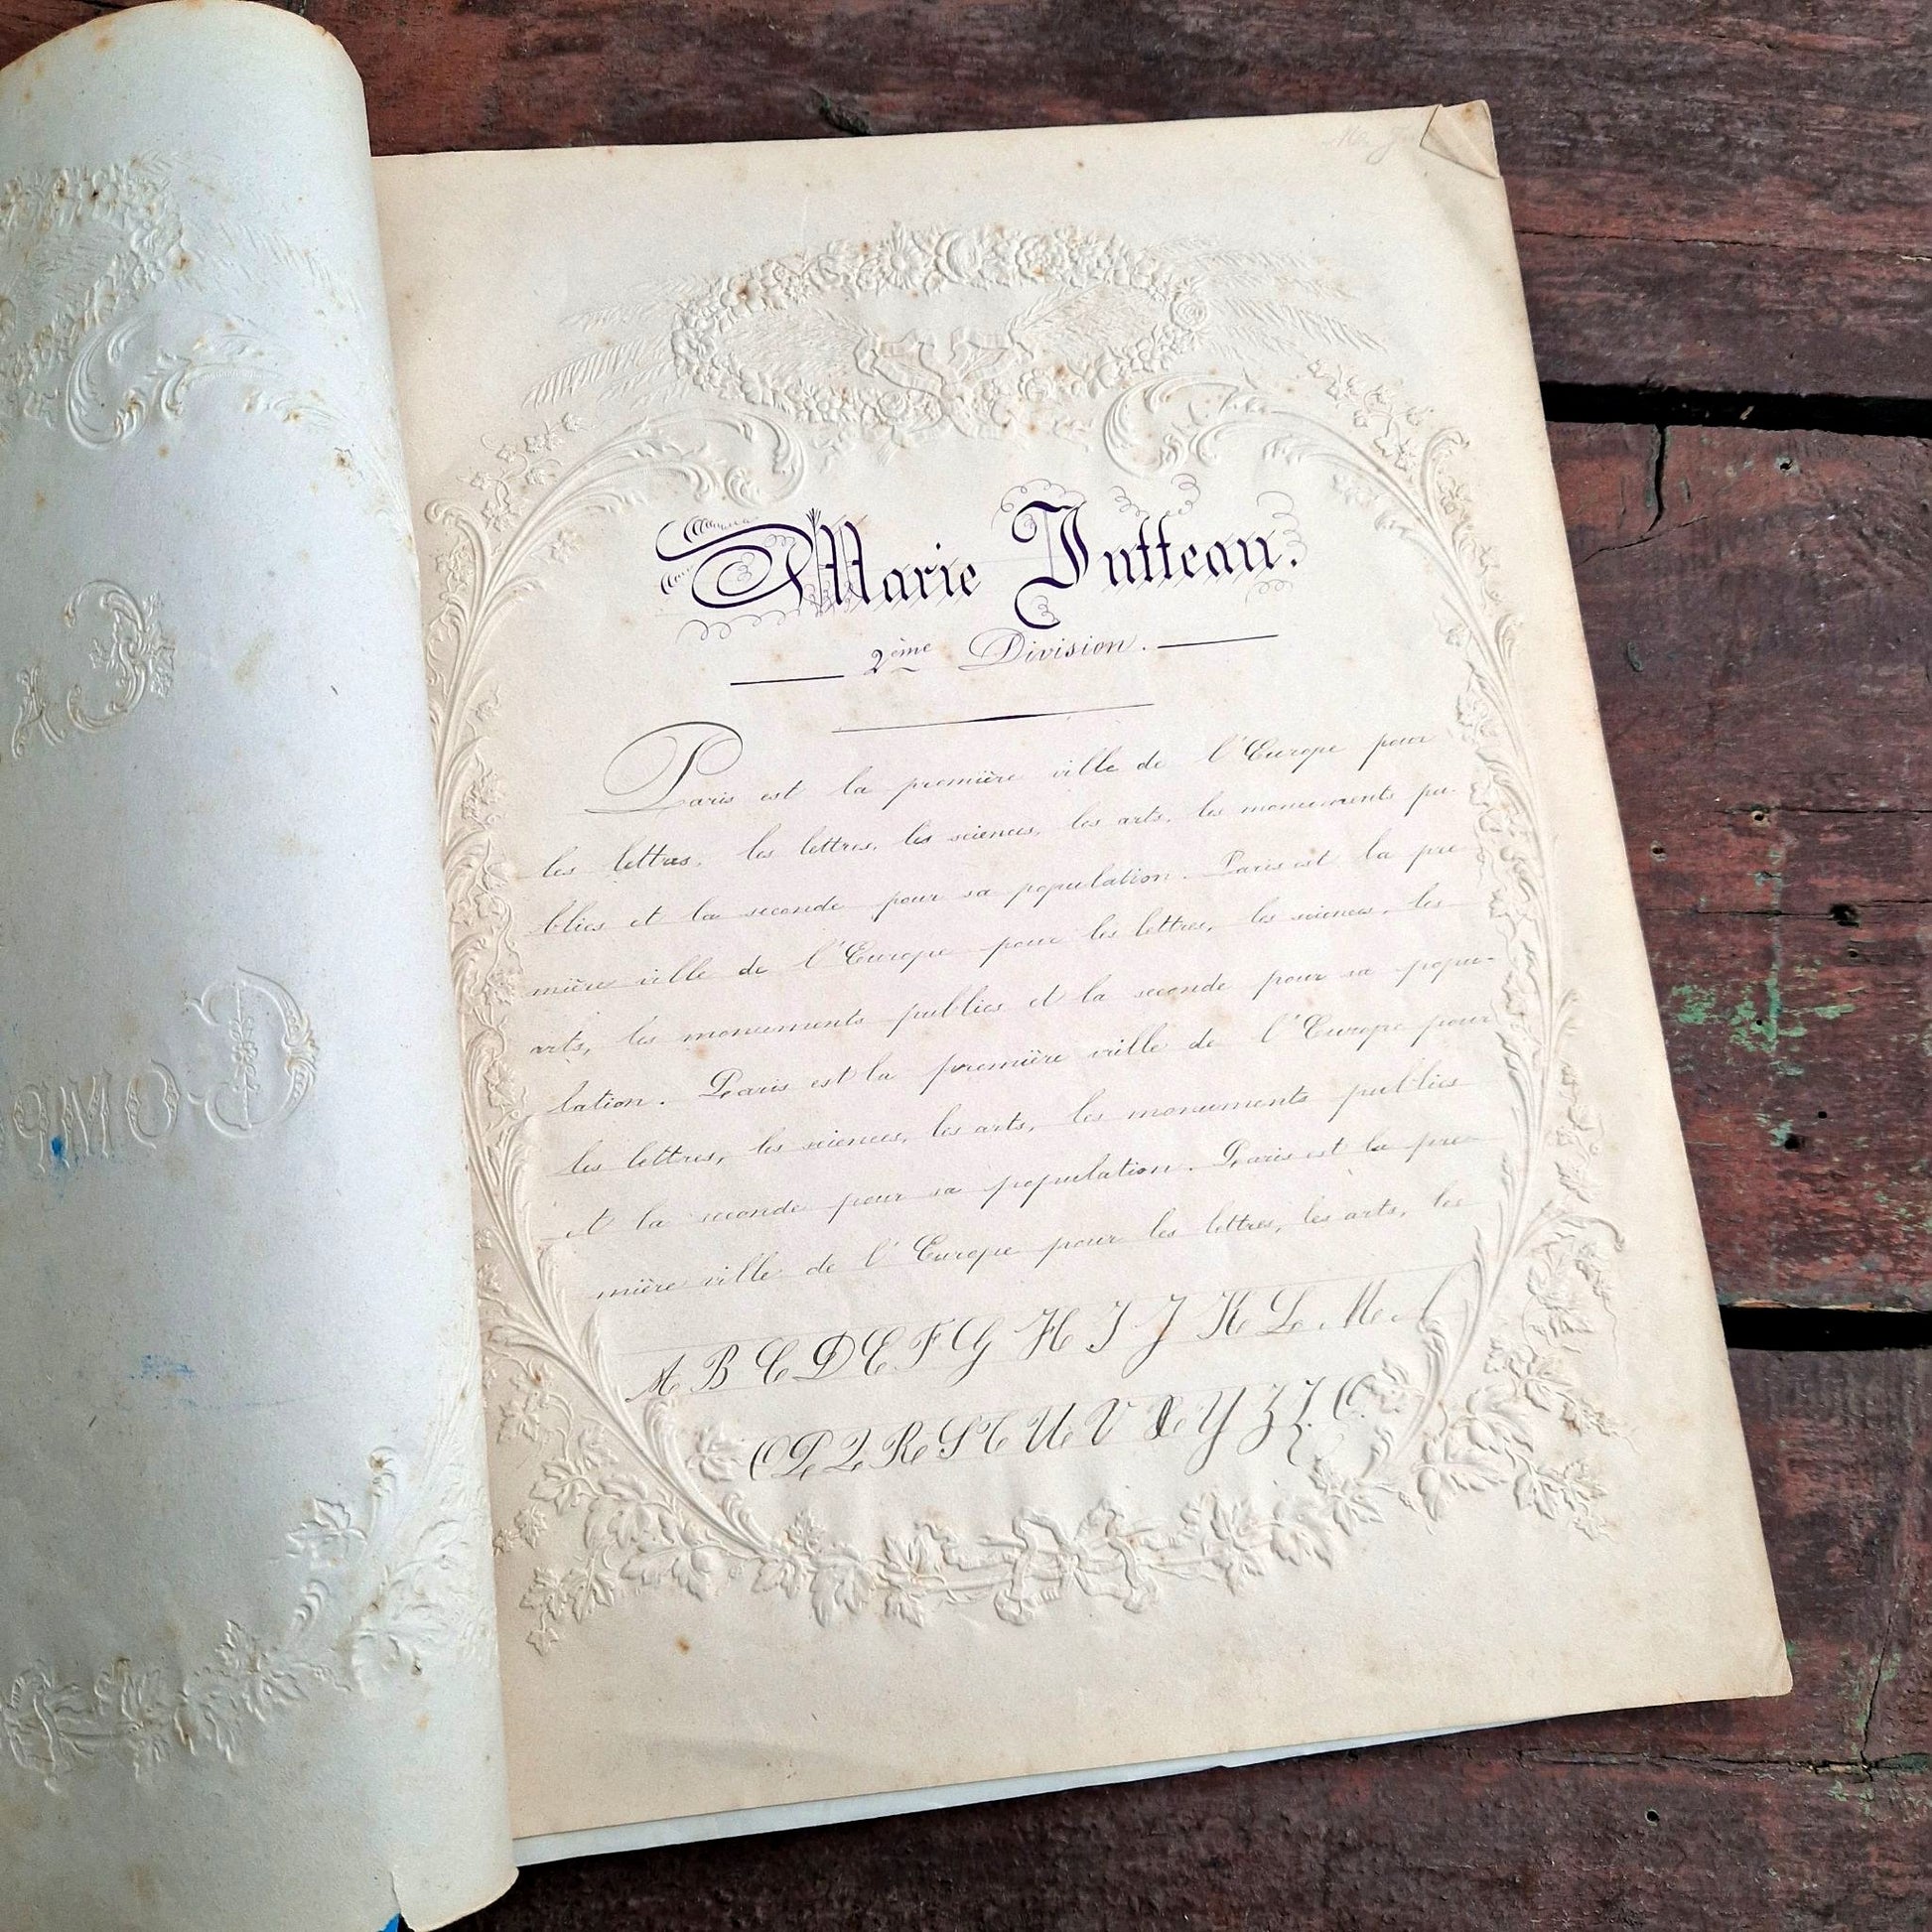 Marie Jutteau.
2ème Division.
Paris est la première ville de l'Europe pour
les lettres, les lettres, les sciences, les arts, les monuments pu-
blics et la seconde pour sa population. Paris est la pre
mière ville de l'Europe pour les lettres, les sciences, les
arts, les monuments publics et la seconde pour sa popu-
lation. Paris est la première ville de l'Europe pour
les lettres, les sciences, les arts, les monuments publics
et la seconde pour sa population. Paris est la pre-
mière ville de l'Europe pour les lettres, les arts, les
A B C D E F G H I J K L M N
O P Q R S T U V X Y Z